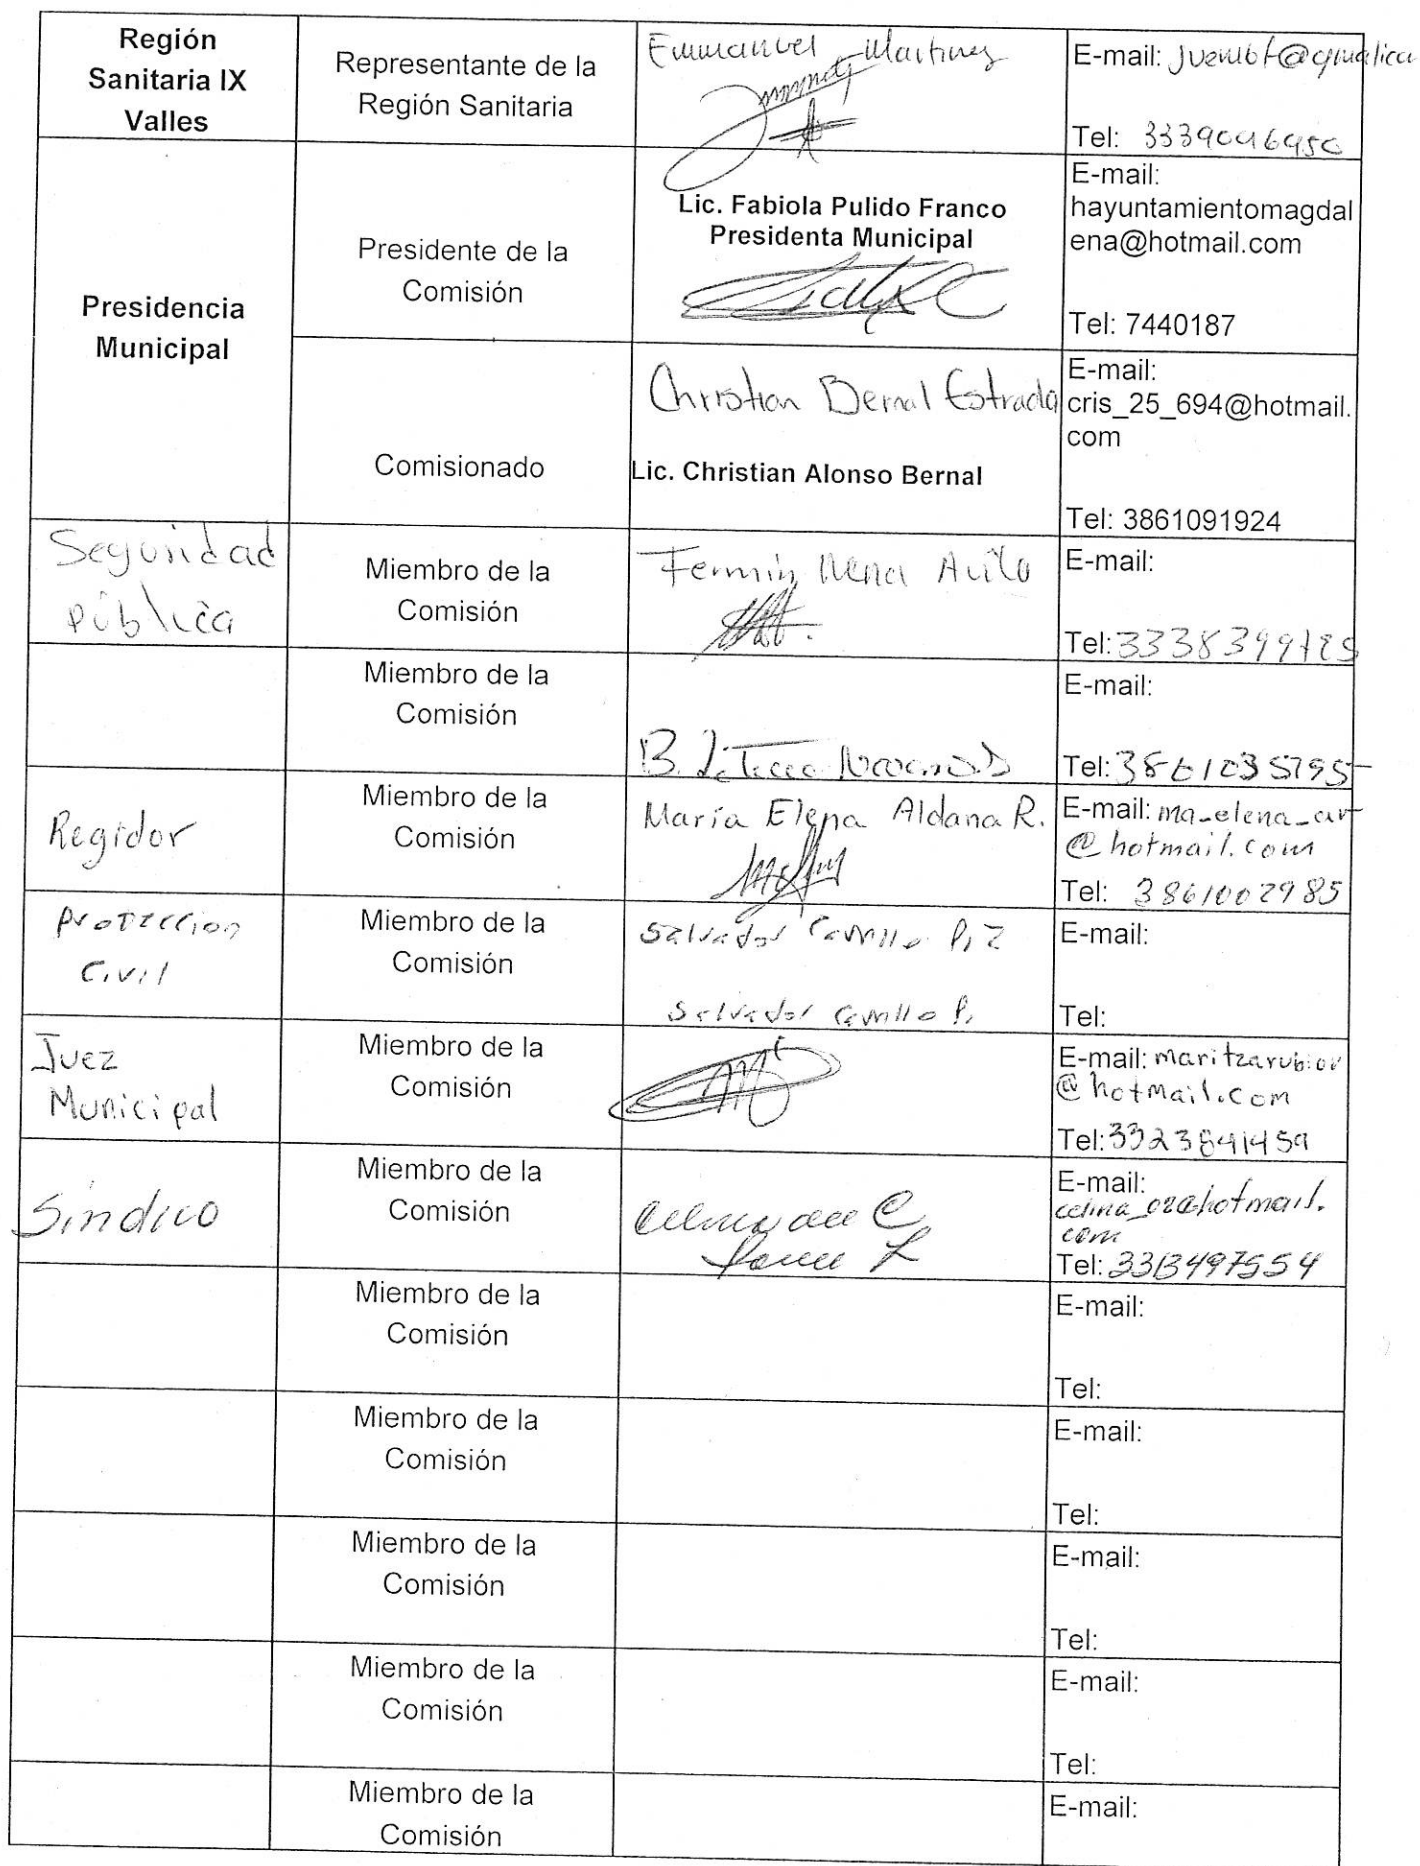 Región
Sanitaria IX
Valles
Representante de la
Región Sanitaria
Emmanuel Martinez
E-mail:
Tel:
Presidencia
Municipal
Presidente de la
Comisión
Lic. Fabiola Pulido Franco
Presidenta Municipal
E-mail:
hayuntamientomagdal
ena@hotmail.com
Tel: 7440187
Comisionado
Christian Bernal Estrada
Lic. Christian Alonso Bernal
E-mail:
cris_25_694@hotmail.
com
Tel: 3861091924
Seguridad
pública
Miembro de la
Comisión
Fermin Mena Avila
E-mail:
Tel:
Miembro de la
Comisión
B.
E-mail:
Tel:
Regidor
Miembro de la
Comisión
María Elena Aldana R.
E-mail: ma_elena_ar
@hotmail.com
Tel: 3861002985
Protección
Civil
Miembro de la
Comisión
Salvador Carrillo
Salvador Carrillo
E-mail:
Tel:
Juez
Municipal
Miembro de la
Comisión
E-mail: maritzarubior
@hotmail.com
Tel: 3323841459
Síndico
Miembro de la
Comisión
E-mail:
celina_02@hotmail.
com
Tel: 3313497554
Miembro de la
Comisión
E-mail:
Tel:
Miembro de la
Comisión
E-mail:
Tel:
Miembro de la
Comisión
E-mail:
Tel:
Miembro de la
Comisión
E-mail:
Tel:
Miembro de la
Comisión
E-mail: